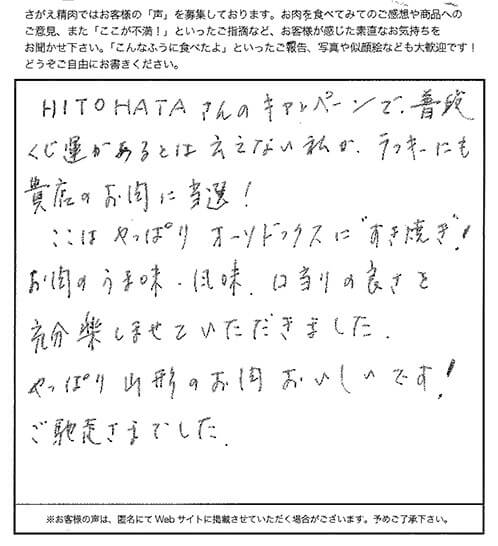 さがえ精肉ではお客様の「声」を募集しております。お肉を食べてみてのご感想や商品への
ご意見、また「ここが不満！」といったご指摘など、お客様が感じた素直なお気持ちを
お聞かせ下さい。「こんなふうに食べたよ」といったご報告、写真や似顔絵なども大歓迎です！
どうぞご自由にお書きください。
HITOHATAさんのキャンペーンで、普段
くじ運があるとは言えない私が、ラッキーにも
貴店のお肉に当選！
ここはやっぱりオーソドックスに"すき焼き"！
お肉のうま味・風味、口当りの良さを
充分楽しませていただきました。
やっぱり山形のお肉おいしいです！
ご馳走さまでした。
※お客様の声は、匿名にてWebサイトに掲載させていただく場合がございます。予めご了承下さい。